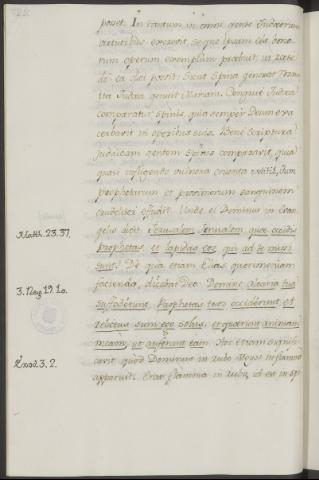 posset. In tantum, in omni gente Judæorum
virtutibus excrevit, se que ipsam eis bono-
rum operum exemplum præbuit, ut recte
de ea dici possit: Sicut Spina generat rosam
ita Judæa genuit Mariam. Congrue Judæa
comparatur spinis, quia semper Deum exa-
cerbavit in operibus suis. Bene Scriptura
Judaicam gentem spinis comparavit, quia
quasi infligendo vulnera cruenta extitit, dum
prophetarum et patriarcarum sanguinem
crudeliter effudit. Unde et Dominus in Evan-
gelio dicit: Jerusalem Jerusalem, quæ occidis
Matth. 23. 37.
prophetas, et lapidas eos qui ad te missi
sunt. De qua etiam Elias querimoniam
faciendo, dicebat Deo: Domine, Altaria tua
3. Reg. 19. 10.
suffoderunt, Prophetas tuos occiderunt, et
relictus sum ego solus, et quærunt animam
meam, ut auferant eam. Hoc etiam signifi-
cavit quod Dominus in rubo Moysi in flamma
Exod. 3. 2.
apparuit. Erat flamma in rubo, id est in sp